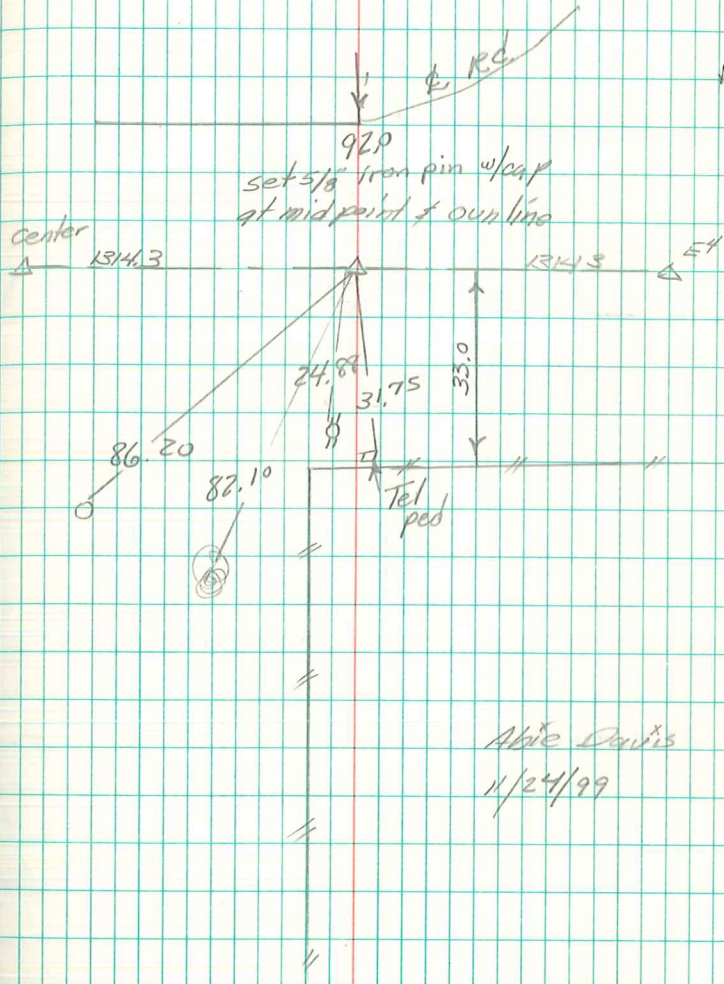 ℄ Rd.
92.0
set 5/8" iron pin w/cap
at midpoint & on line
Center
1314.3
1314.3
E4
24.88
31.75
33.0
86.20
82.10
Tel
ped
Abie Davis
11/24/99